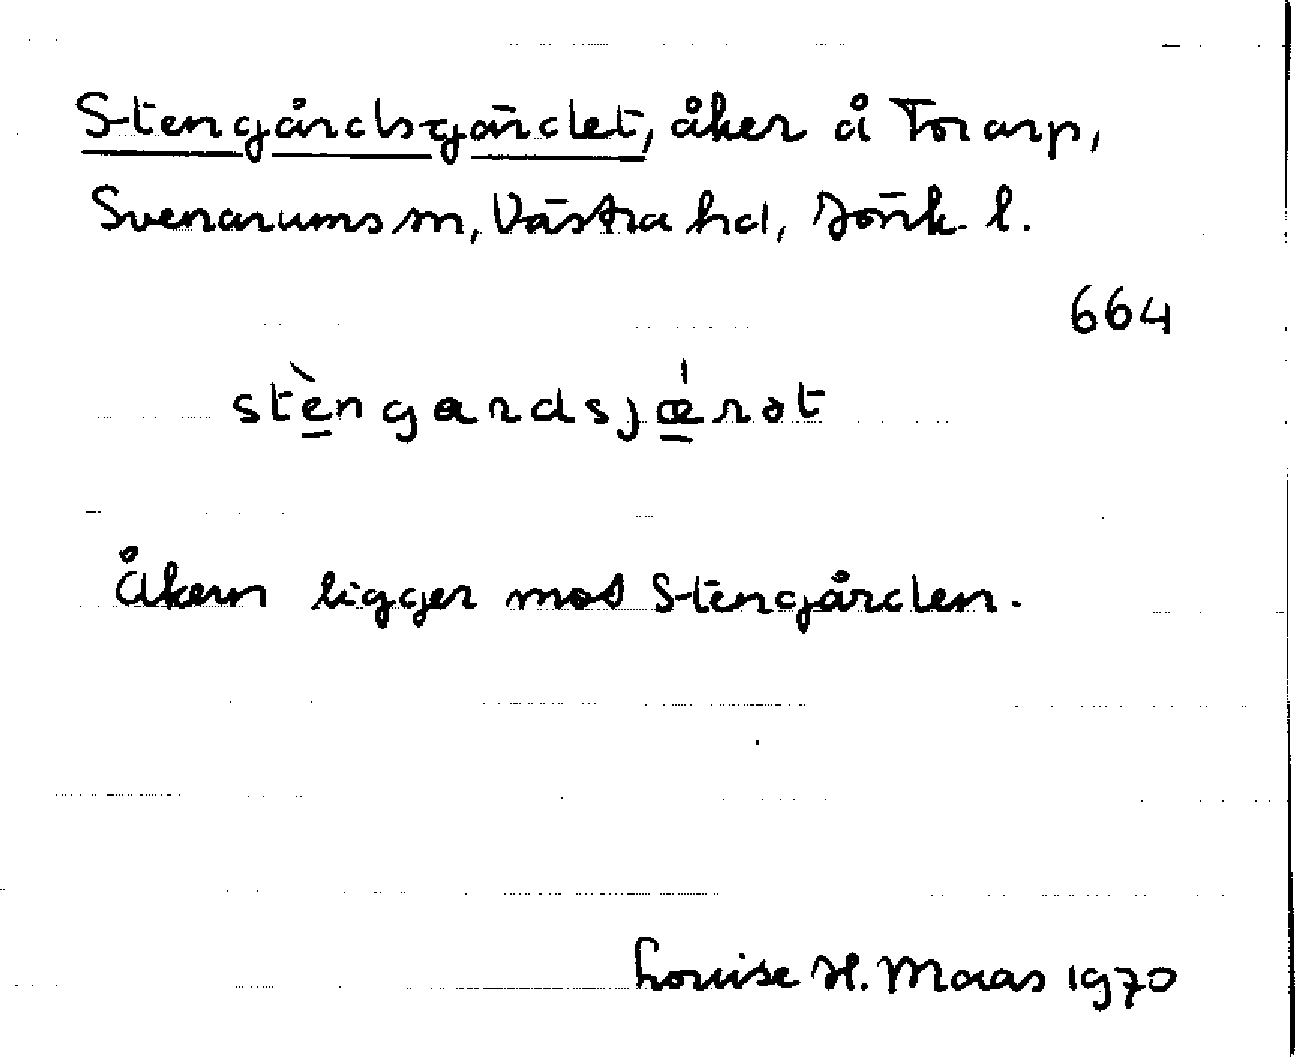 Stengårdsgärdet, åker å Torarp,
Svenarums sn, Västra hd, Jönk. l.
664
stèngardsjǽrət
Åkern ligger mot Stengården.
Louise H. Maas 1970